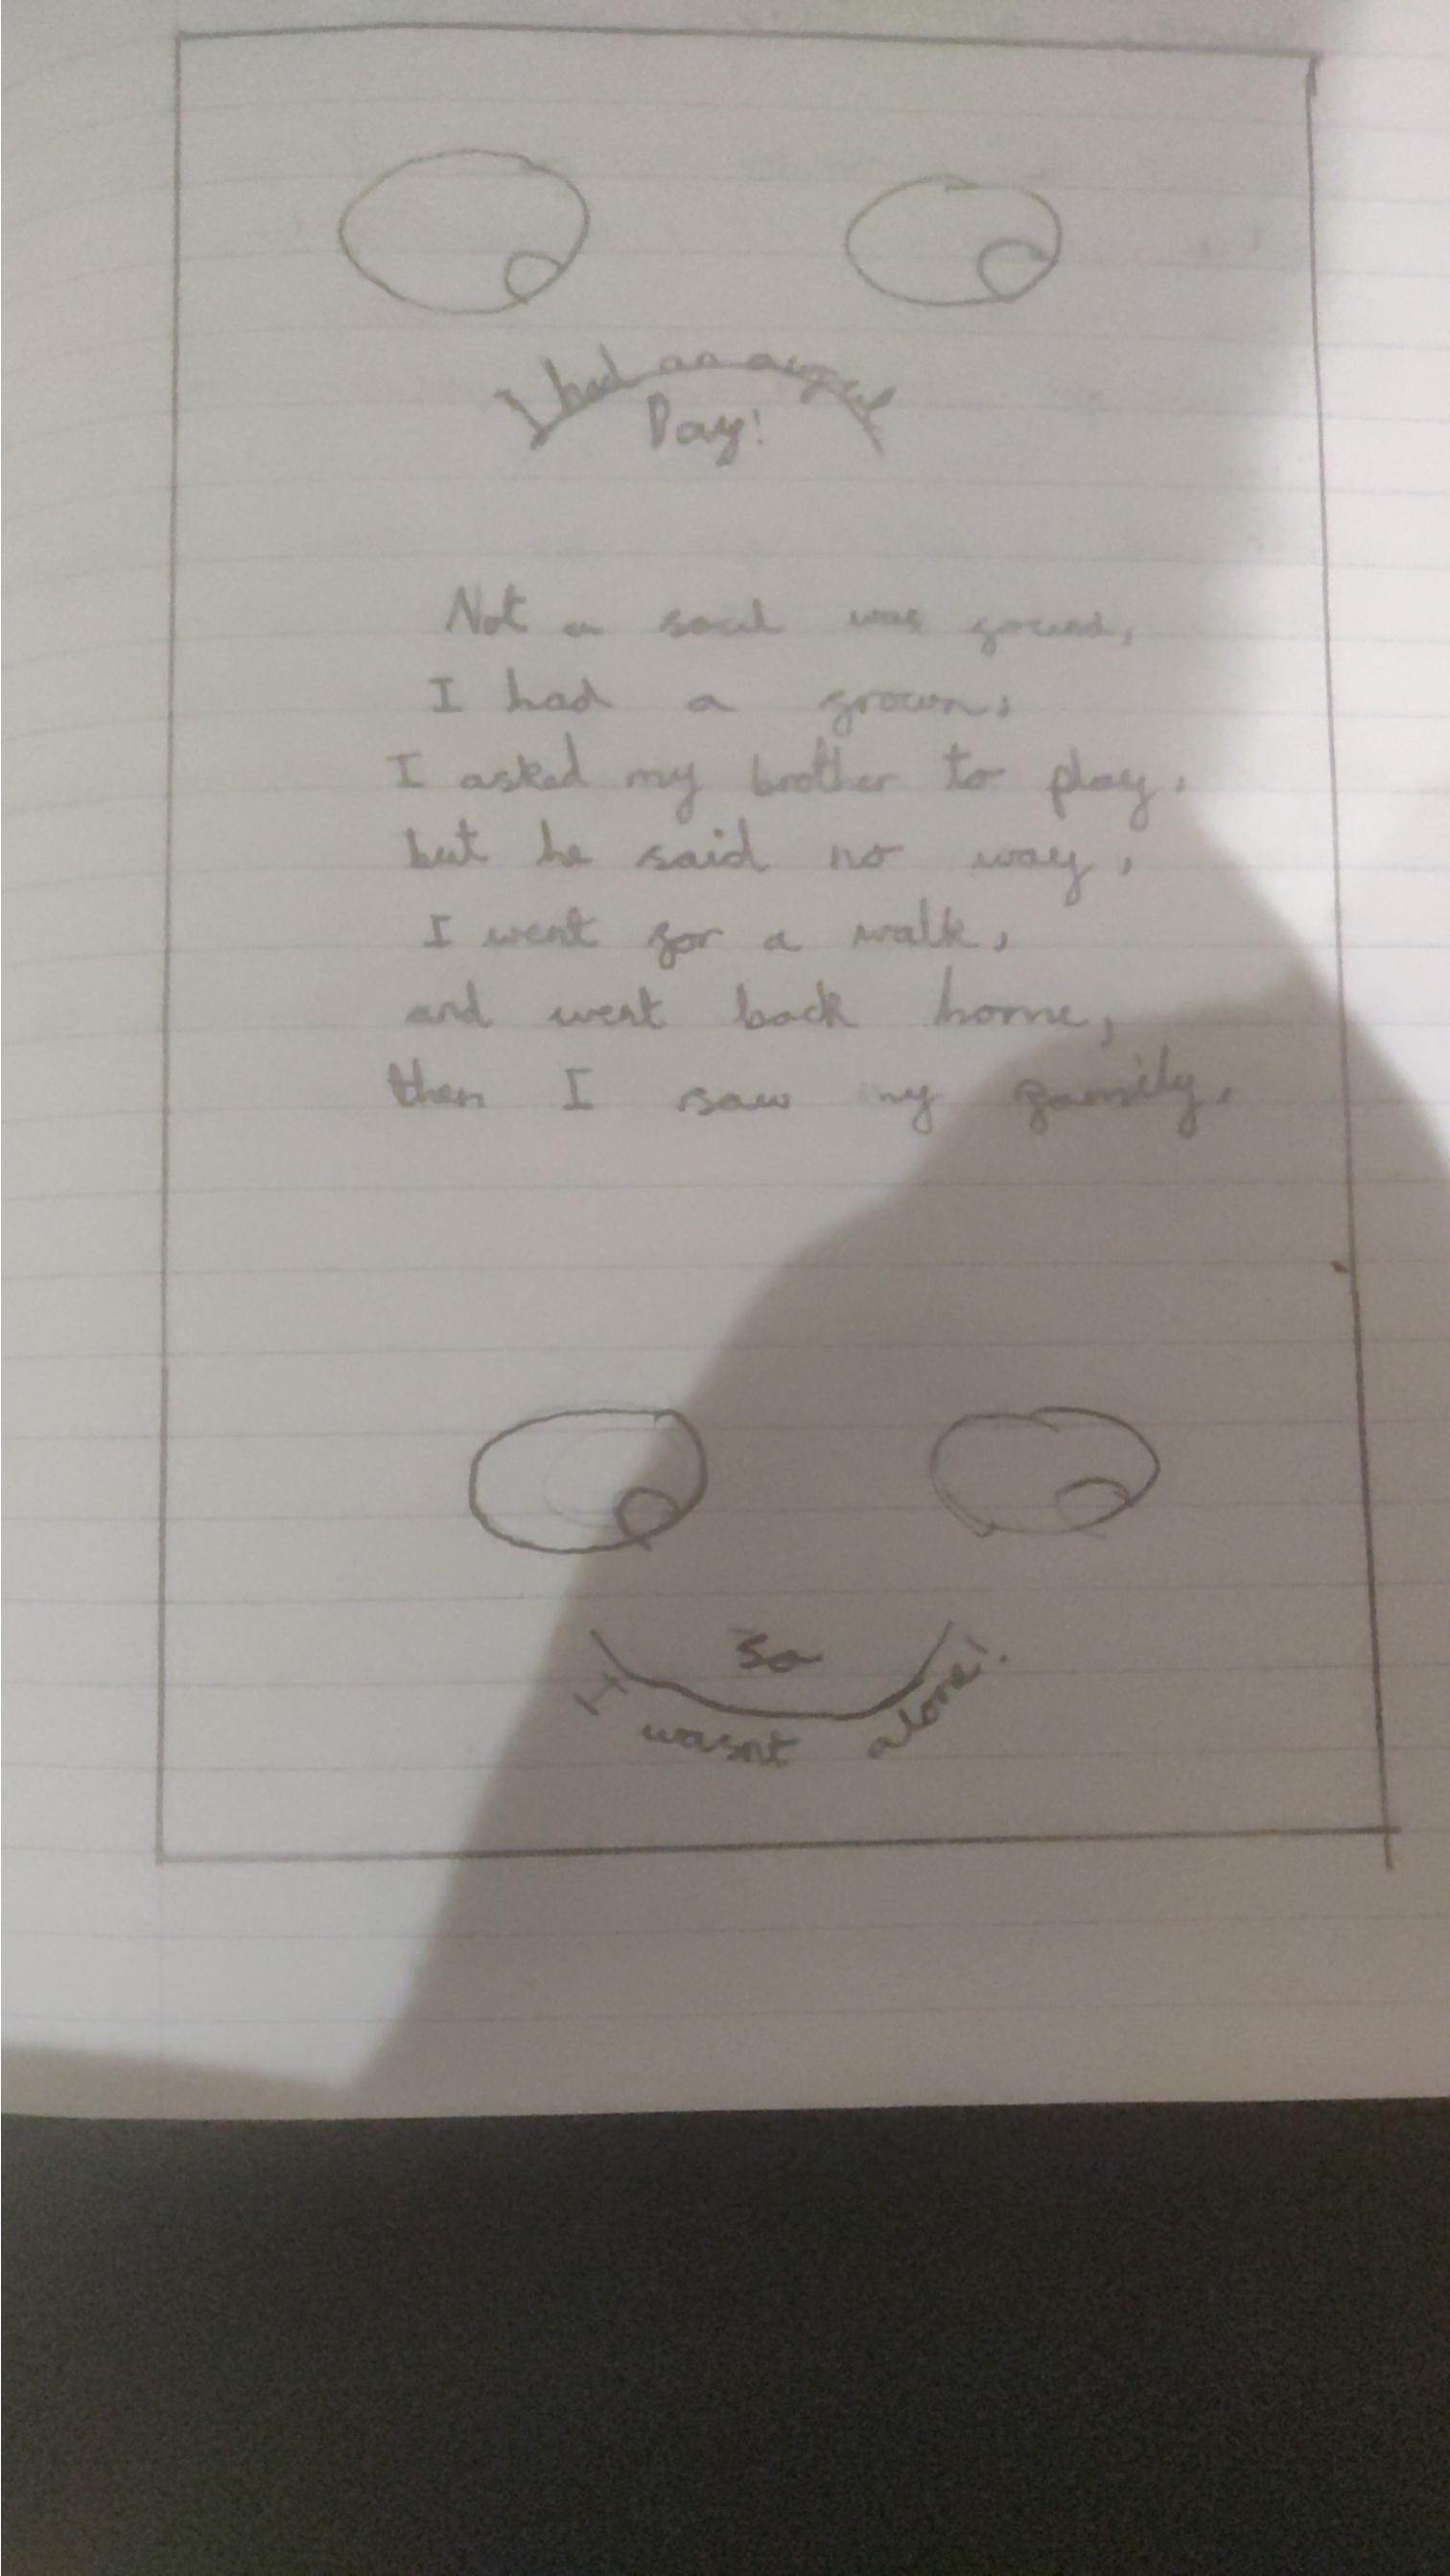 I had an awful
Day!
Not a soul was found,
I had a frown,
I asked my brother to play,
but he said no way,
I went for a walk,
and went back home,
then I saw my family.
So
I wasnt alone!